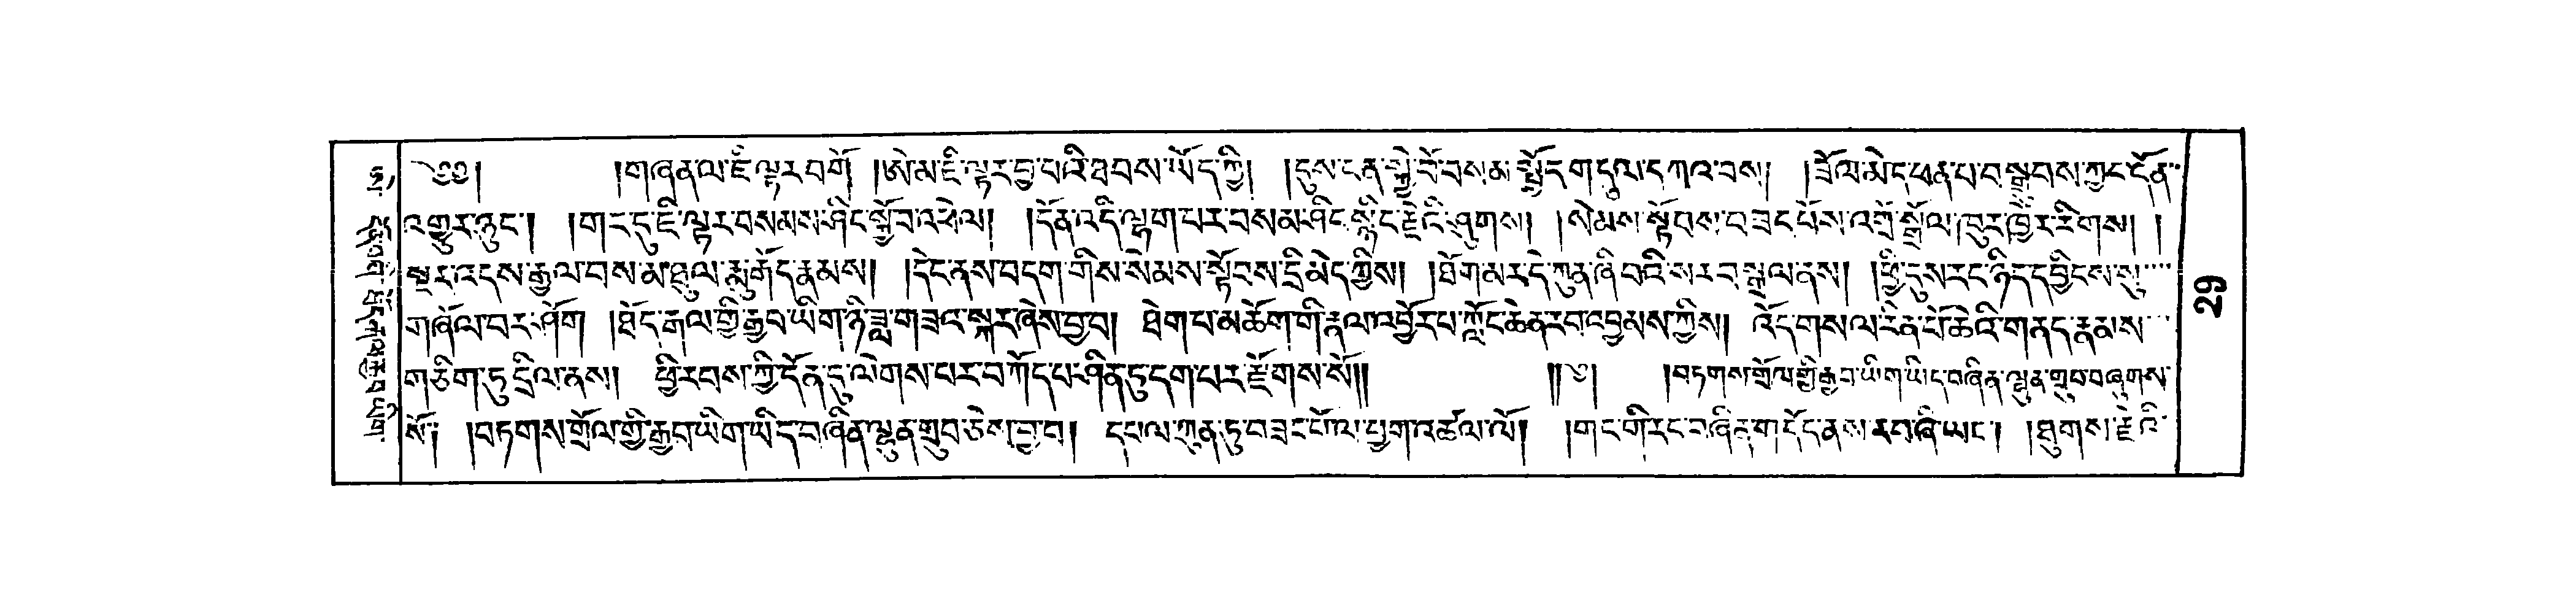 ༄༅། །གཞན་ལ་ཇི་ལྟར་བགོ། །ཨེ་མ་ཇི་ལྟར་བྱ་བའི་ཐབས་ཡོད་ཀྱི། །དུས་ངན་སྐྱེ་བོ་བསམ་སྦྱོད་གདུལ་དཀའ་བས། །ཟོལ་མེད་ཕན་པ་བསྒྲུབས་ཀྱང་དོན་
འགྱུར་ཉུང་། །གང་དུ་ཇི་ལྟར་བསམས་ཤིང་སྐྱོ་བ་འཕེལ། །དོན་འདི་ལྷག་པར་བསམ་ཤིང་སྙིང་རྗེའི་ཤུགས། །སེམས་སྟོབས་བཟང་པོས་འགྲོ་སྒྲོལ་ཁུར་ཁྱེར་རིགས། །
སྔར་འདས་རྒྱལ་བས་མ་ཐུལ་རྨུ་རྒོད་རྣམས། །དེང་ནས་བདག་གིས་སེམས་སྟོབས་དྲི་མེད་ཀྱིས། །ཐོག་མར་དེ་ཀུན་ཞི་བའི་སར་བསྒྲལ་ནས། །ཕྱི་དུས་རང་ཉིད་དབྱིངས་སུ་
གཞོལ་བར་ཤོག །ཐོད་རྒལ་གྱི་རྒྱབ་ཡིག་ཉི་ཟླ་གཟའ་སྐར་ཞེས་བྱ་བ། ཐེག་པ་མཆོག་གི་རྣལ་འབྱོར་པ་ཀློང་ཆེན་རབ་འབྱམས་ཀྱིས། འོད་གསལ་རིན་པོ་ཆེའི་གནད་རྣམས་
གཅིག་ཏུ་དྲིལ་ནས། ཕྱི་རབས་ཀྱི་དོན་དུ་ལེགས་པར་བཀོད་པ་ཤིན་ཏུ་དག་པར་རྫོགས་སོ།། །།༄། །བཏགས་གྲོལ་གྱི་རྒྱབ་ཡིག་ཡིད་བཞིན་ལྷུན་གྲུབ་བཞུགས་
སོ། །བཏགས་གྲོལ་གྱི་རྒྱབ་ཡིག་ཡིད་བཞིན་ལྷུན་གྲུབ་ཅེས་བྱ་བ། དཔལ་ཀུན་ཏུ་བཟང་པོ་ལ་ཕྱག་འཚལ་ལོ། །གང་གི་རང་བཞིན་གདོད་ནས་རབ་ཞི་ཡང་། །ཐུགས་རྗེའི་